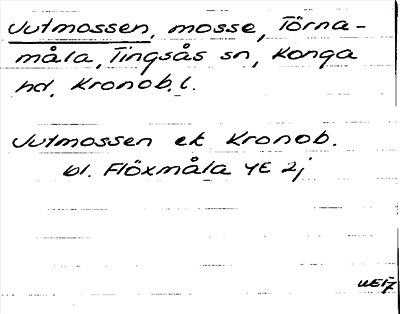 Jutmossen, mosse, Törna-
måla, Tingsås sn, Konga
hd, Kronob. l.
Jutmossen ek Kronob.
bl. Flöxmåla 4E 2j